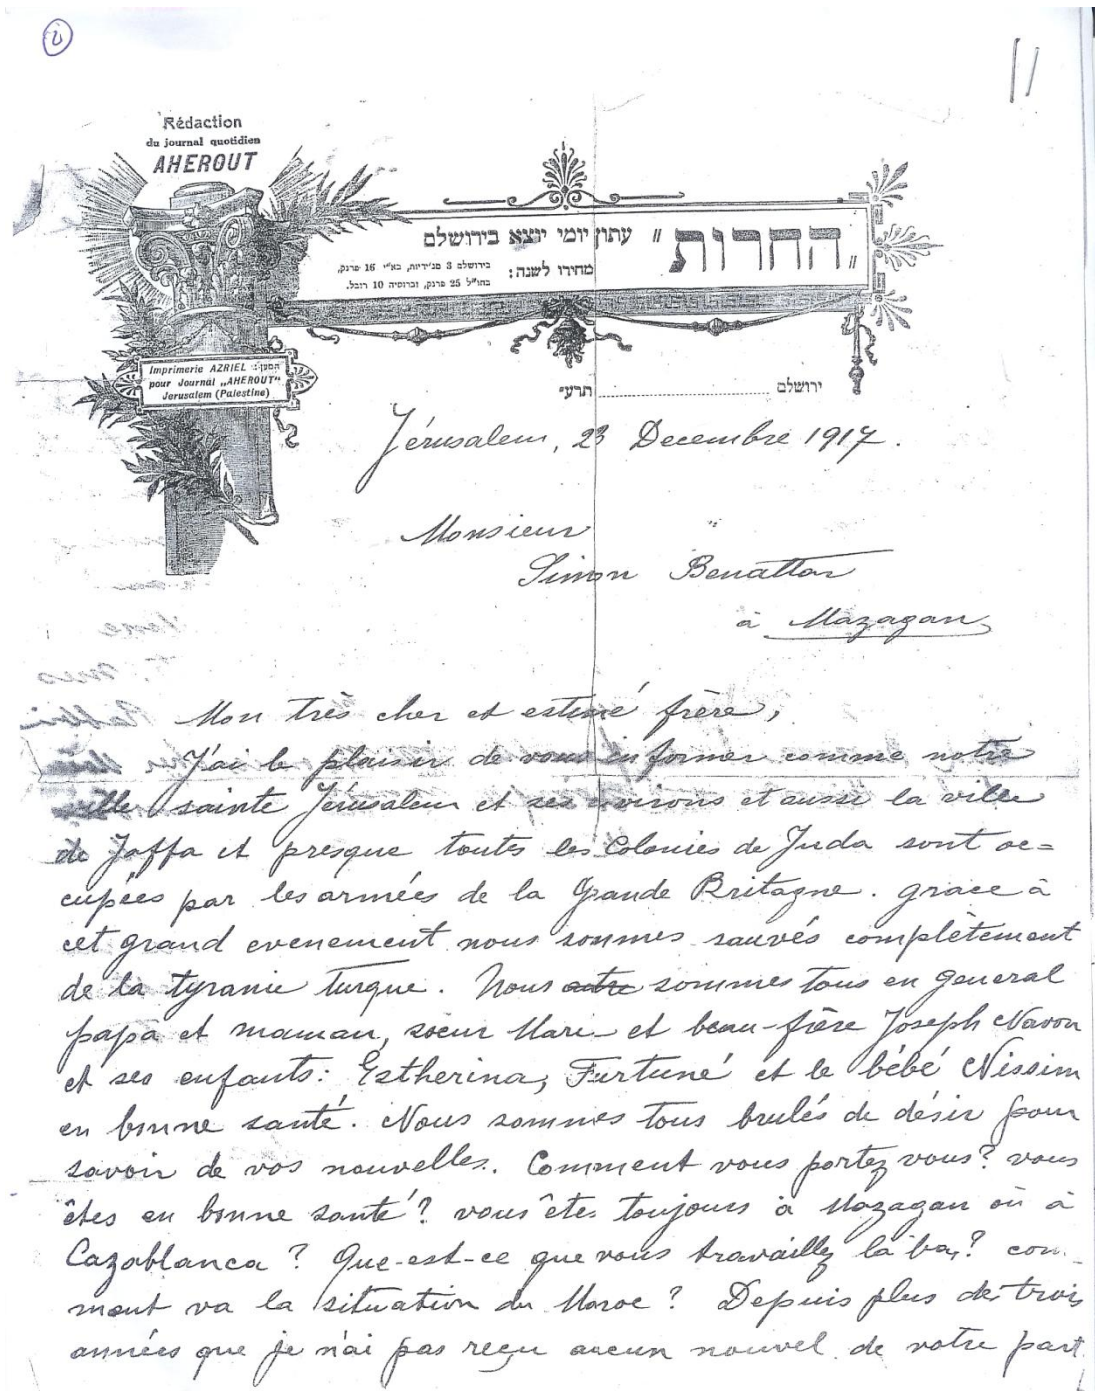 11
Rédaction
du journal quotidien
AHEROUT
"החרות" עתון יומי יוצא בירושלם
מחירו לשנה:
בירושלם 3 מג'ידיות, בא"י 16 פרנק,
בחו"ל 25 פרנק, וברוסיה 10 רובל.
Imprimerie AZRIEL
pour Journal „AHEROUT"
Jerusalem (Palestine)
ירושלם ........ תרע"
Jérusalem, 23 Decembre 1917.
Monsieur
Simon Benattar
à Mazagan
Mon très cher et estimé frère,
J'ai le plaisir de vous informer comme notre
ville sainte Jérusalem et ses environs et aussi la ville
de Jaffa et presque toutes les Colonies de Juda sont oc=
cupées par les armées de la Grande Britagne. grace à
cet grand evenement nous sommes sauvés complètement
de la tyranie turque. Nous autre sommes tous en general
papa et maman, soeur Marie et beau-frère Joseph Navon
et ses enfants: Estherina, Furtuné et le bébé Nissim
en bonne santé. Nous sommes tous brulés de désir pour
savoir de vos nouvelles. Comment vous portez vous? vous
êtes en bonne santé? vous êtes toujours à Mazagan où à
Cazablanca? Que-est-ce que vous travaillez là bas? com-
ment va la situation du Maroc? Depuis plus de trois
années que je n'ai pas reçu aucun nouvel de votre part